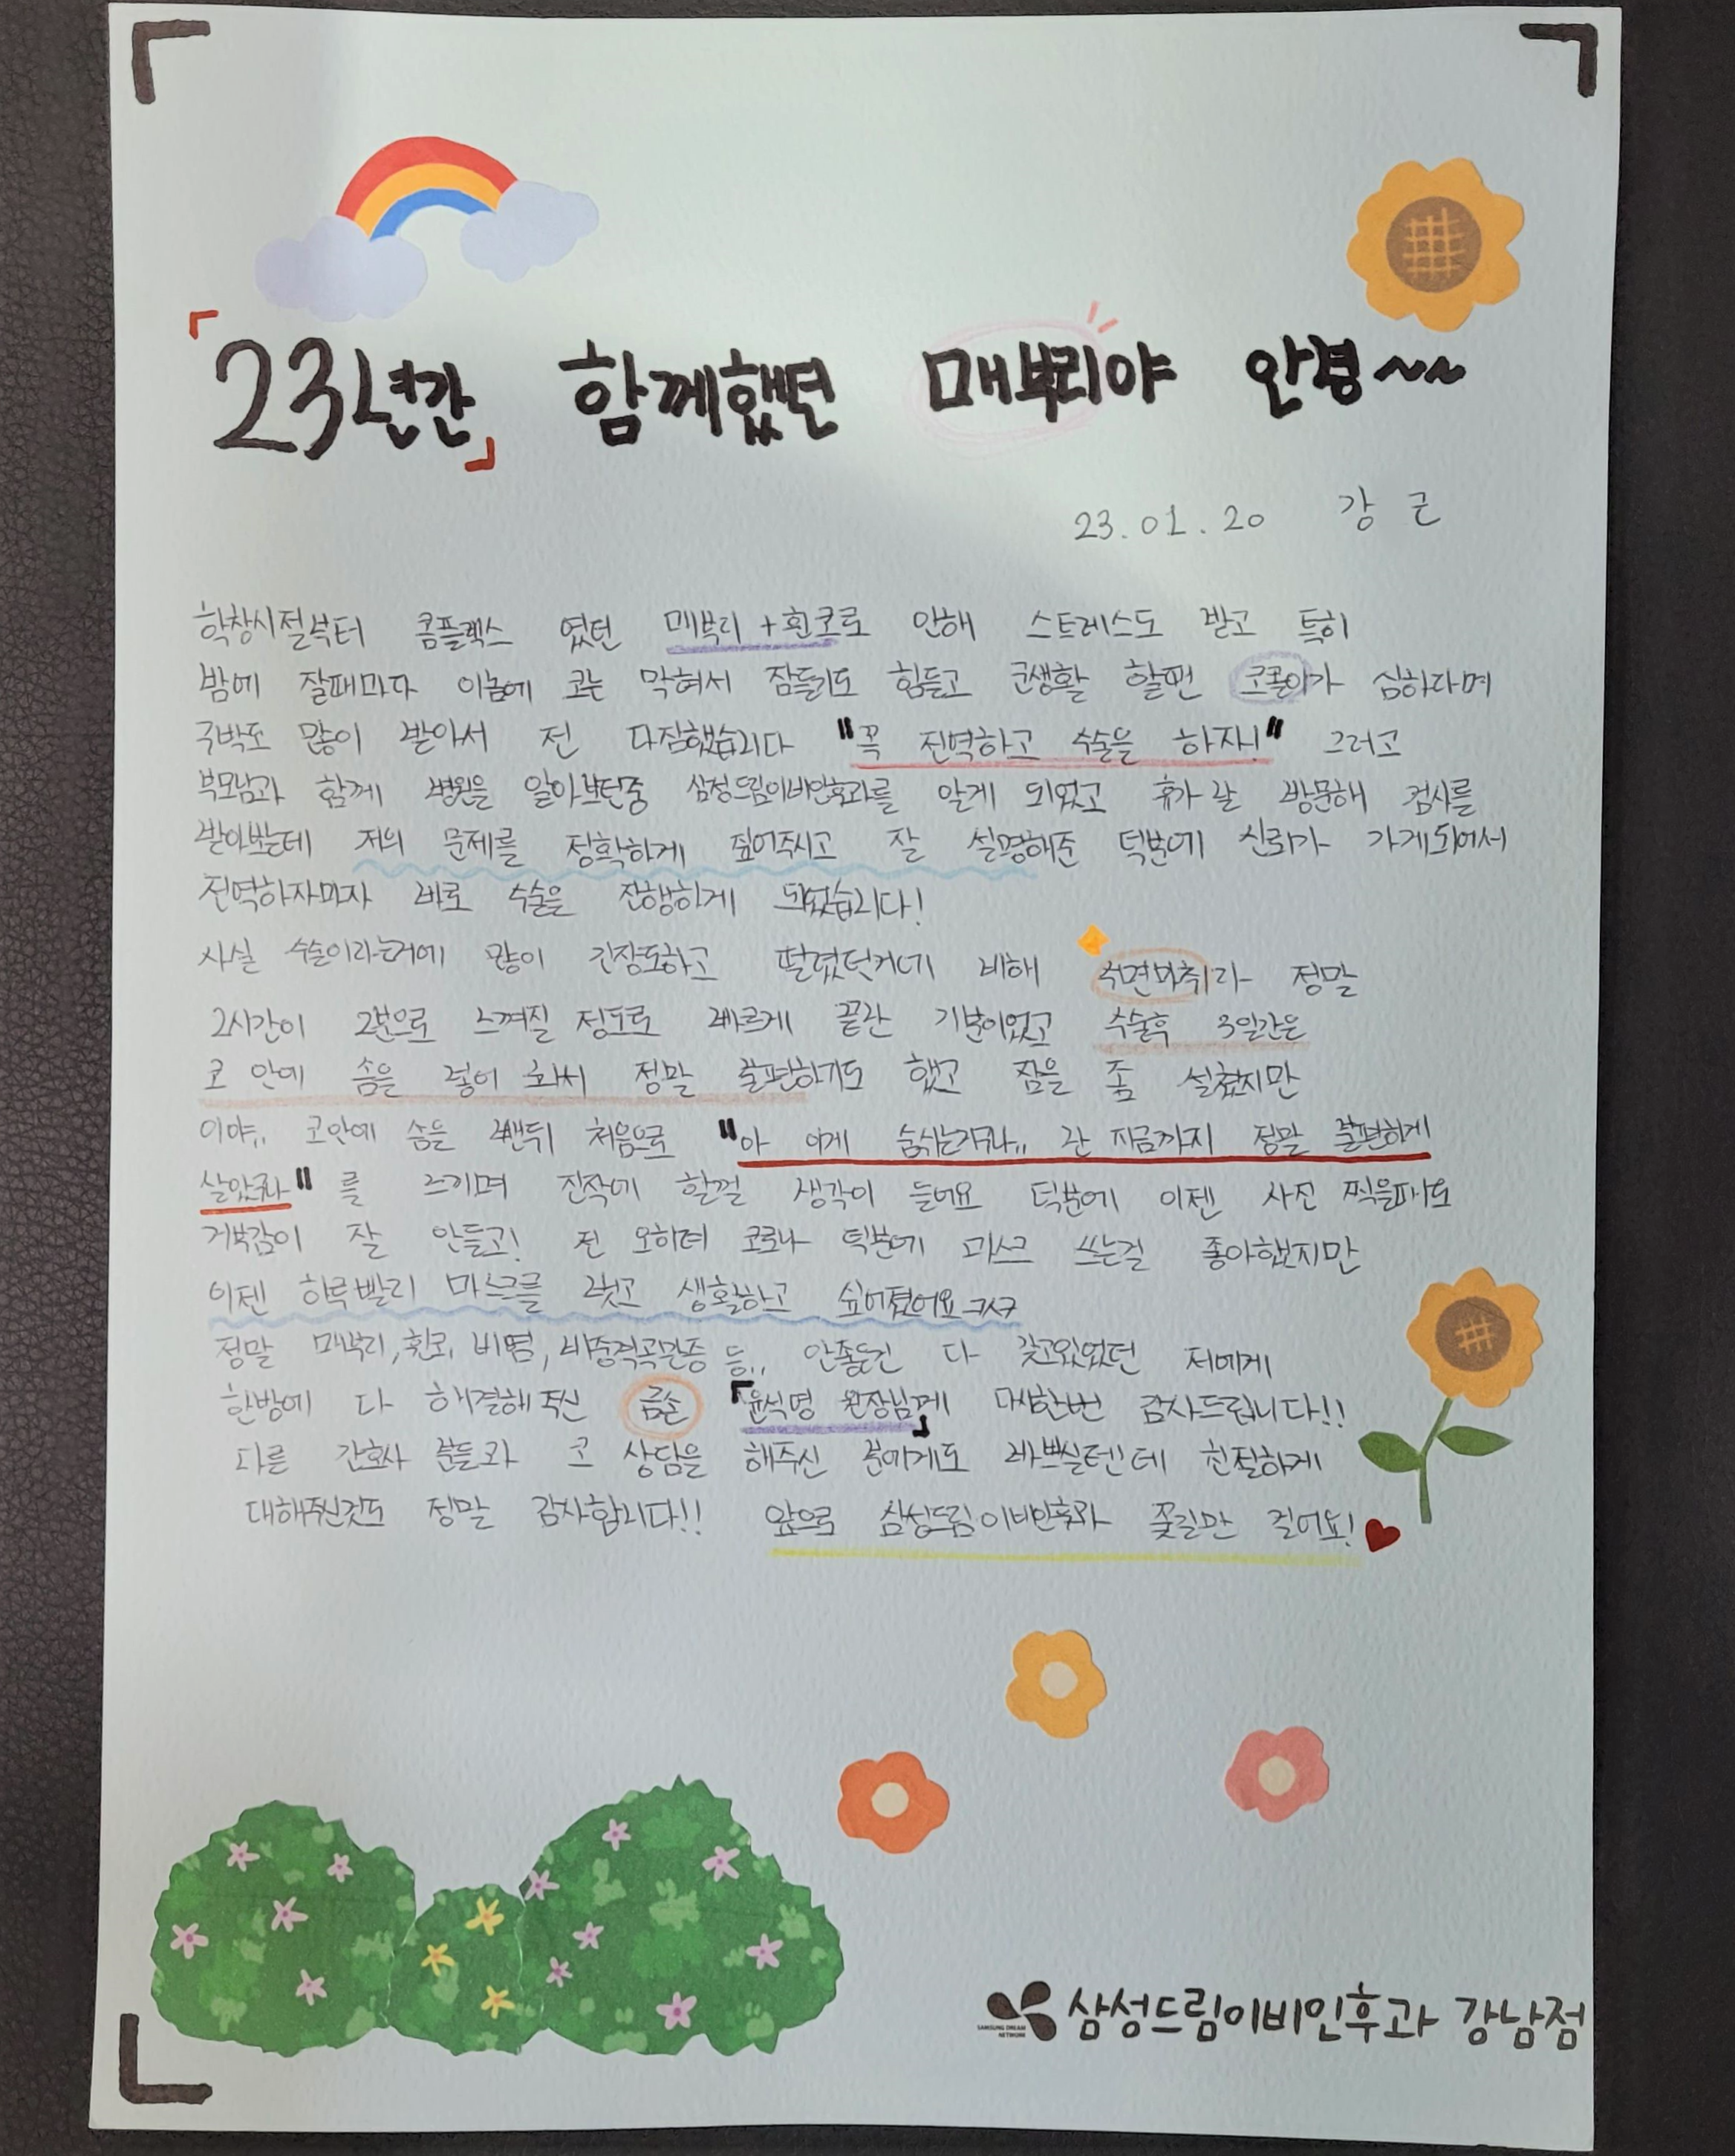 「23년간」 함께했던 매부리야 안녕~~
23.01.20 강 근
학창시절부터 콤플렉스 였던 매부리+휜코로 인해 스트레스도 받고 특히
밤에 잘때마다 이놈에 코는 막혀서 잠들기도 힘들고 군생활 할땐 코골이가 심하다며
구박도 많이 받아서 전 다짐했습니다 "꼭 전역하고 수술을 하자!" 그러고
부모님과 함께 병원을 알아보던중 삼성드림이비인후과를 알게 되었고 휴가 날 방문해 검사를
받아봤는데 저의 문제를 정확하게 짚어주시고 잘 설명해준 덕분에 신뢰가 가게되어서
전역하자마자 바로 수술을 진행하게 되었습니다!
사실 수술이라는거에 많이 긴장도하고 떨렸던거에 비해 수면마취라 정말
2시간이 2분으로 느껴질 정도로 빠르게 끝난 기분이었고 수술후 3일간은
코 안에 솜을 넣어 놔서 정말 불편하기도 했고 잠을 좀 설쳤지만
이야.. 코안에 솜을 뺀뒤 처음으로 "아 이게 숨쉬는거구나.. 난 지금까지 정말 불편하게
살았구나" 를 느끼며 진작에 할껄 생각이 들어요 덕분에 이젠 사진 찍을때도
거북감이 잘 안들고! 전 오히려 코로나 덕분에 마스크 쓰는걸 좋아했지만
이젠 하루빨리 마스크를 벗고 생활하고 싶어졌어요ㅋㅋㅋ
정말 매부리, 휜코, 비염, 비중격만곡증 등.. 안좋은건 다 갖고있었던 저에게
한방에 다 해결해 주신 금손 「윤석명 원장님께」 다시한번 감사드립니다!!
다른 간호사 분들과 코 상담을 해주신 분에게도 바쁘실텐데 친절하게
대해주신것도 정말 감사합니다!! 앞으로 삼성드림이비인후과 꽃길만 걸어요!
SAMSUNG DREAM NETWORK 삼성드림이비인후과 강남점